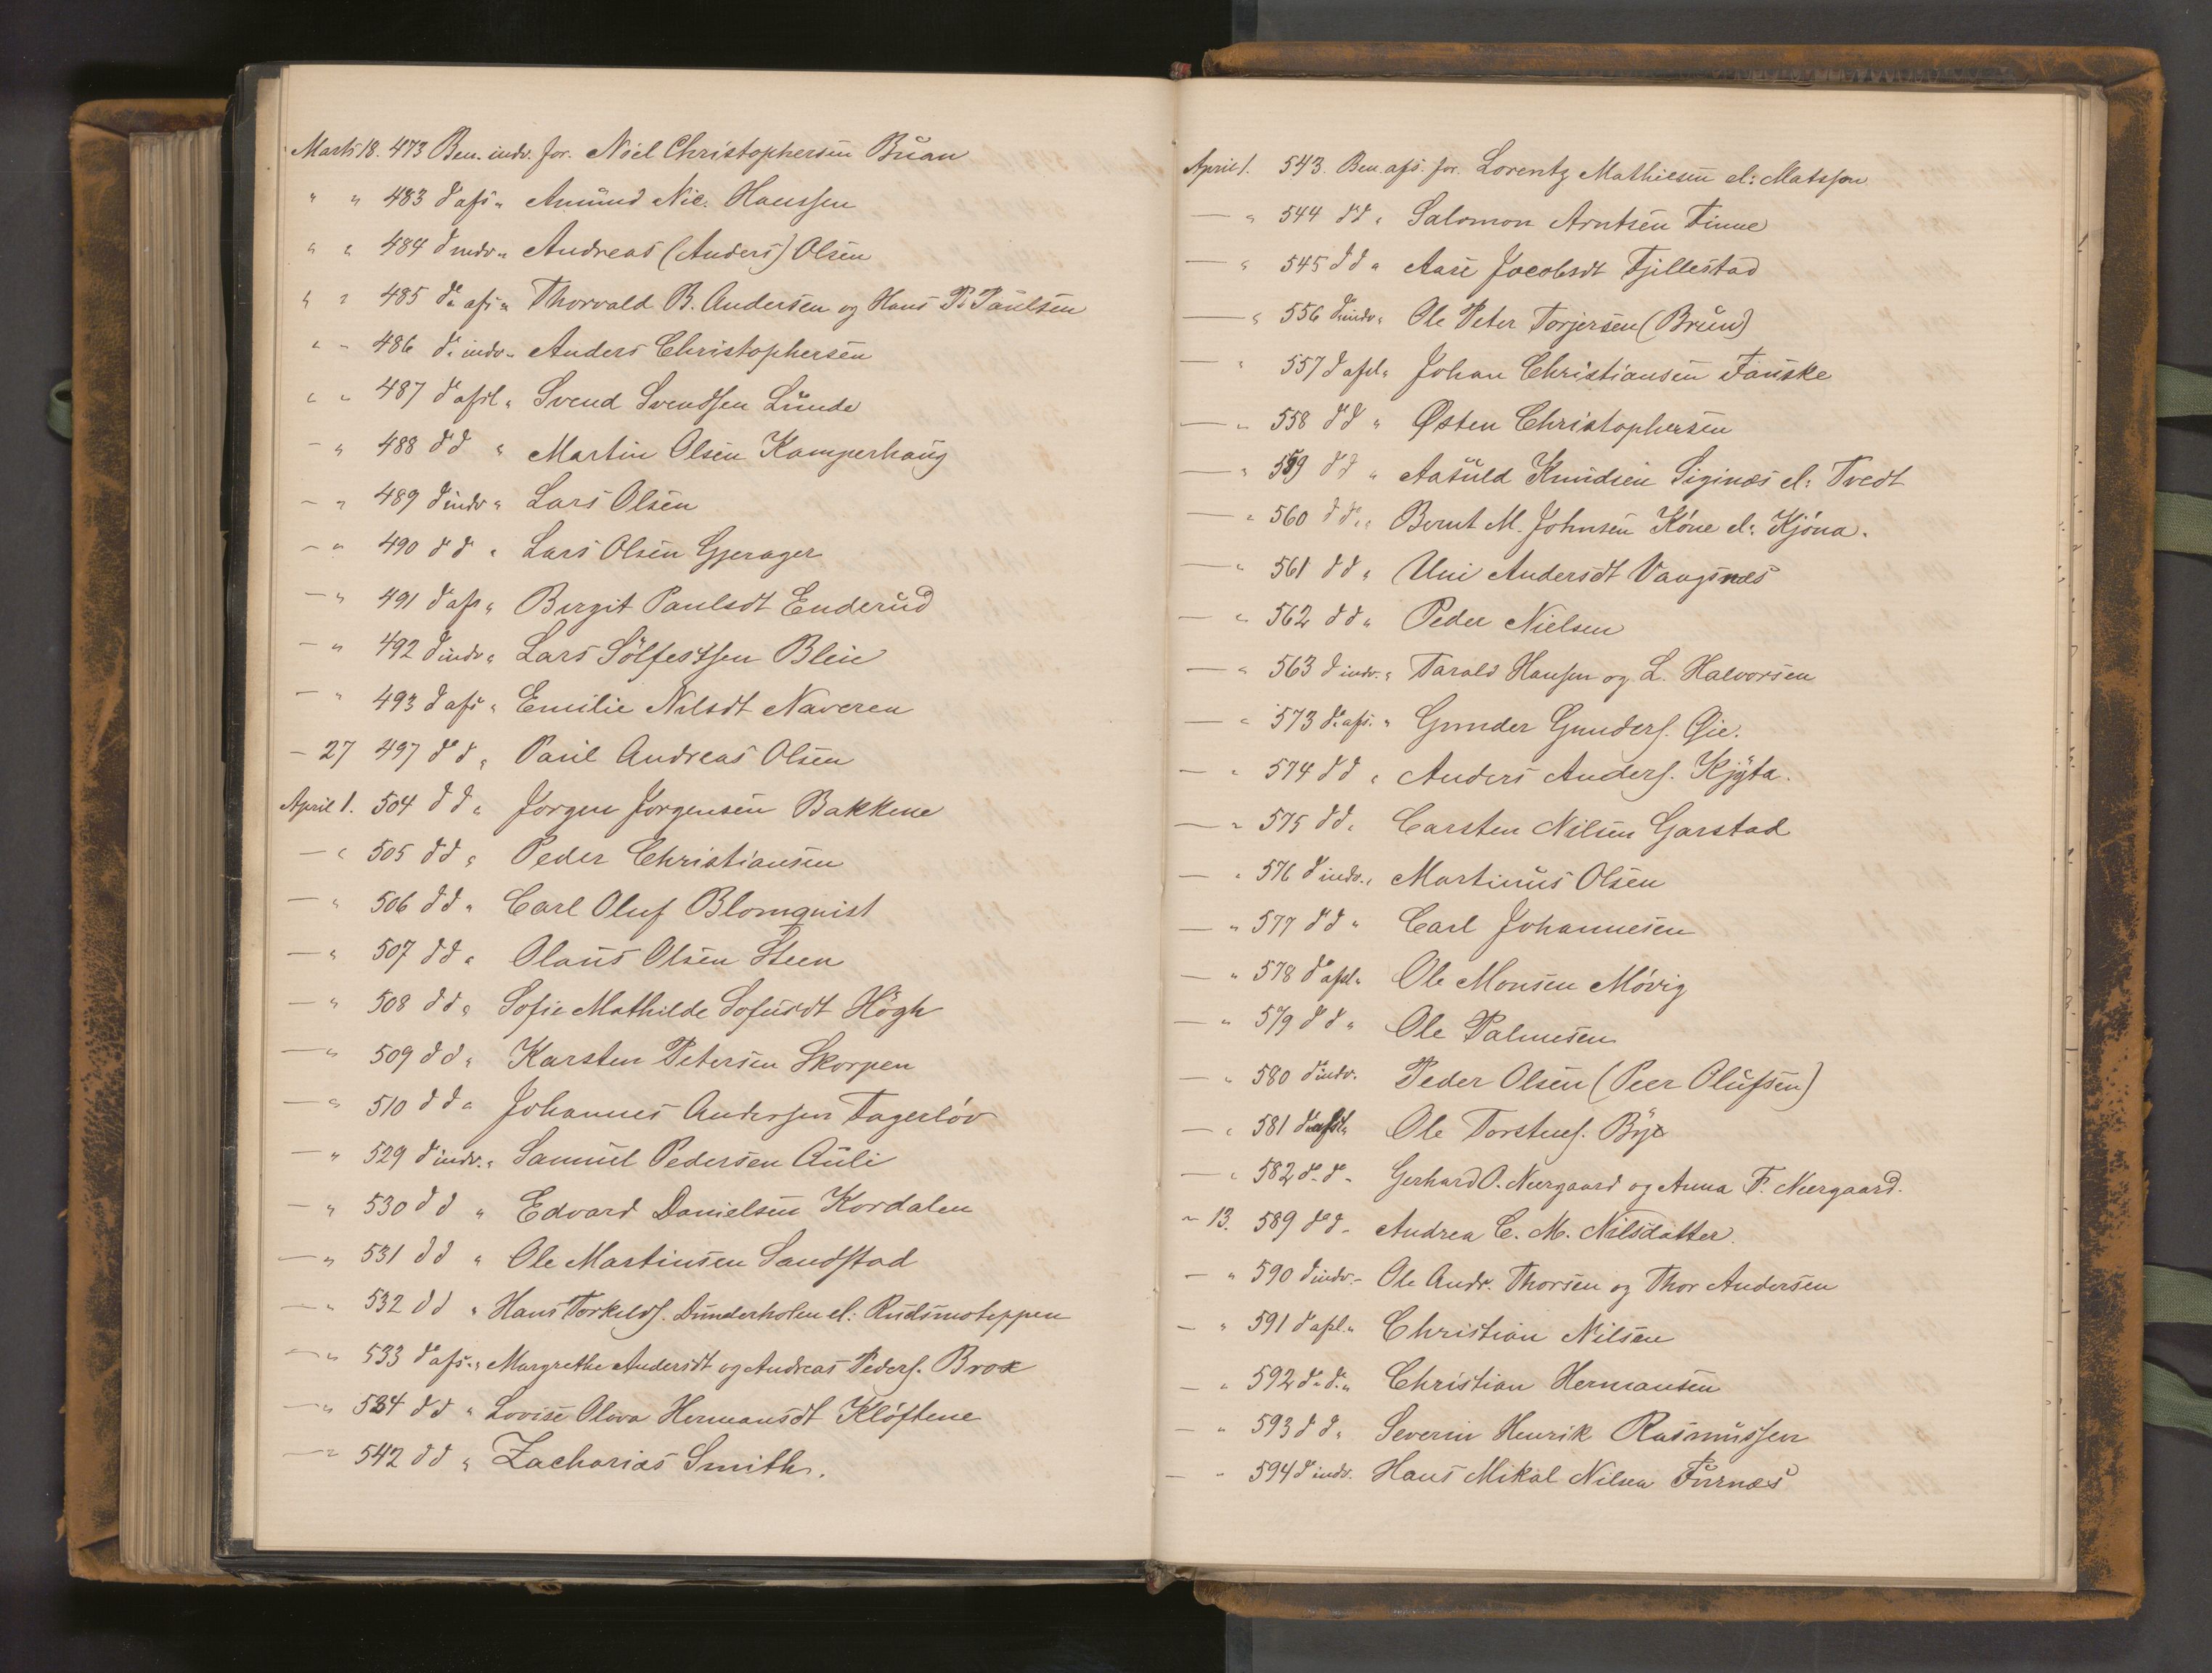 Marts 18. 473 Ben. indv. for. Noel Christophersen Buan
" " 483 do afs. " Amund Nic. Hanssen
" " 484 do indv. " Andreas (Anders) Olsen
" " 485 do afs. " Thorvald B. Andersen og Hans P. Paulsen
" " 486 do indv. " Anders Christophersen
" " 487 do afsl. " Svend Svendsen Lunde
- " 488 do do " Martin Olsen Kamperhaug
- " 489 do indv " Lars Olsen
- " 490 do do " Lars Olsen Gjerager
- " 491 do afs. " Birgit Paulsdt Enderud
- " 492 do indv. " Lars Sölfestsen Bleie
- " 493 do afs. " Emilie Nilsdt Naveren
- 27 497 do do " Paul Andreas Olsen
April 1. 504 do do " Jørgen Jørgensen Bakkene
- " 505 do do " Peder Christiansen
- " 506 do do " Carl Oluf Blomquist
- " 507 do do " Olaus Olsen Steen
- " 508 do do " Sofie Mathilde Sofusdt Högh
- " 509 do do " Karsten Petersen Skorpen
- " 510 do do " Johannes Andersen Fagerlöv
- " 529 do indv. " Samuel Pedersen Auli
- " 530 do do " Edvard Danielsen Kordalen
- " 531 do do " Ole Martinsen Sandstad
- " 532 do do " Hans Torkelds. Dunderholen el: Rudsmoteppen
- " 533 do afs. " Margrethe Andersdt og Andreas Peders. Brox
- " 534 do do " Lovise Olava Hermansdt Klöftene
- " 542 do do " Zacharias Smith.
April 1. 543. Ben. afs. for. Lorentz Mathiesen el: Matsson
- " 544 do do " Salomon Arntsen Finne
- " 545 do do " Aase Jacobsdt Fjillestad
- " 556 do indv. " Ole Peter Torjersen (Brun)
- " 557 do afsl. " Johan Christiansen Fauske
- " 558 do do " Østen Christophersen
- " 559 do do " Aasuld Knudsen Siginæs el: Tvedt
- " 560 do do " Bernt M. Johnsen Köne el: Kjöna.
- " 561 do do " Uni Andersdt Vangsnæs
- " 562 do do " Peder Nielsen
- " 563 do indv. " Tarald Hansen og L. Halvorsen
- " 573 do afs. " Gunder Gunders. Øie.
- " 574 do do " Anders Anders. Kjÿta.
- " 575 do do " Carsten Nilsen Garstad
- " 576 do indv. " Martinus Olsen
- " 577 do do " Carl Johannesen
- " 578 do afsl. " Ole Monsen Mövig
- " 579 do do " Ole Palmesen
- " 580 do indv. Peder Olsen (Peer Olufsen)
- " 581 do afsl. " Ole Torstens. Bÿe
- " 582 do do - Gerhard O. Neergaard og Anna F. Neergaard.
- 13. 589 do do - Andrea C. M. Nilsdatter.
- " 590 do indv. - Ole Andr. Thorsen og Thor Andersen
- " 591 do afsl. " Christian Nilsen
- " 592 do do " Christian Hermansen
- " 593 do do " Severin Henrik Rasmussen
- " 594 do indv. Hans Mikal Nilsen Furnæs